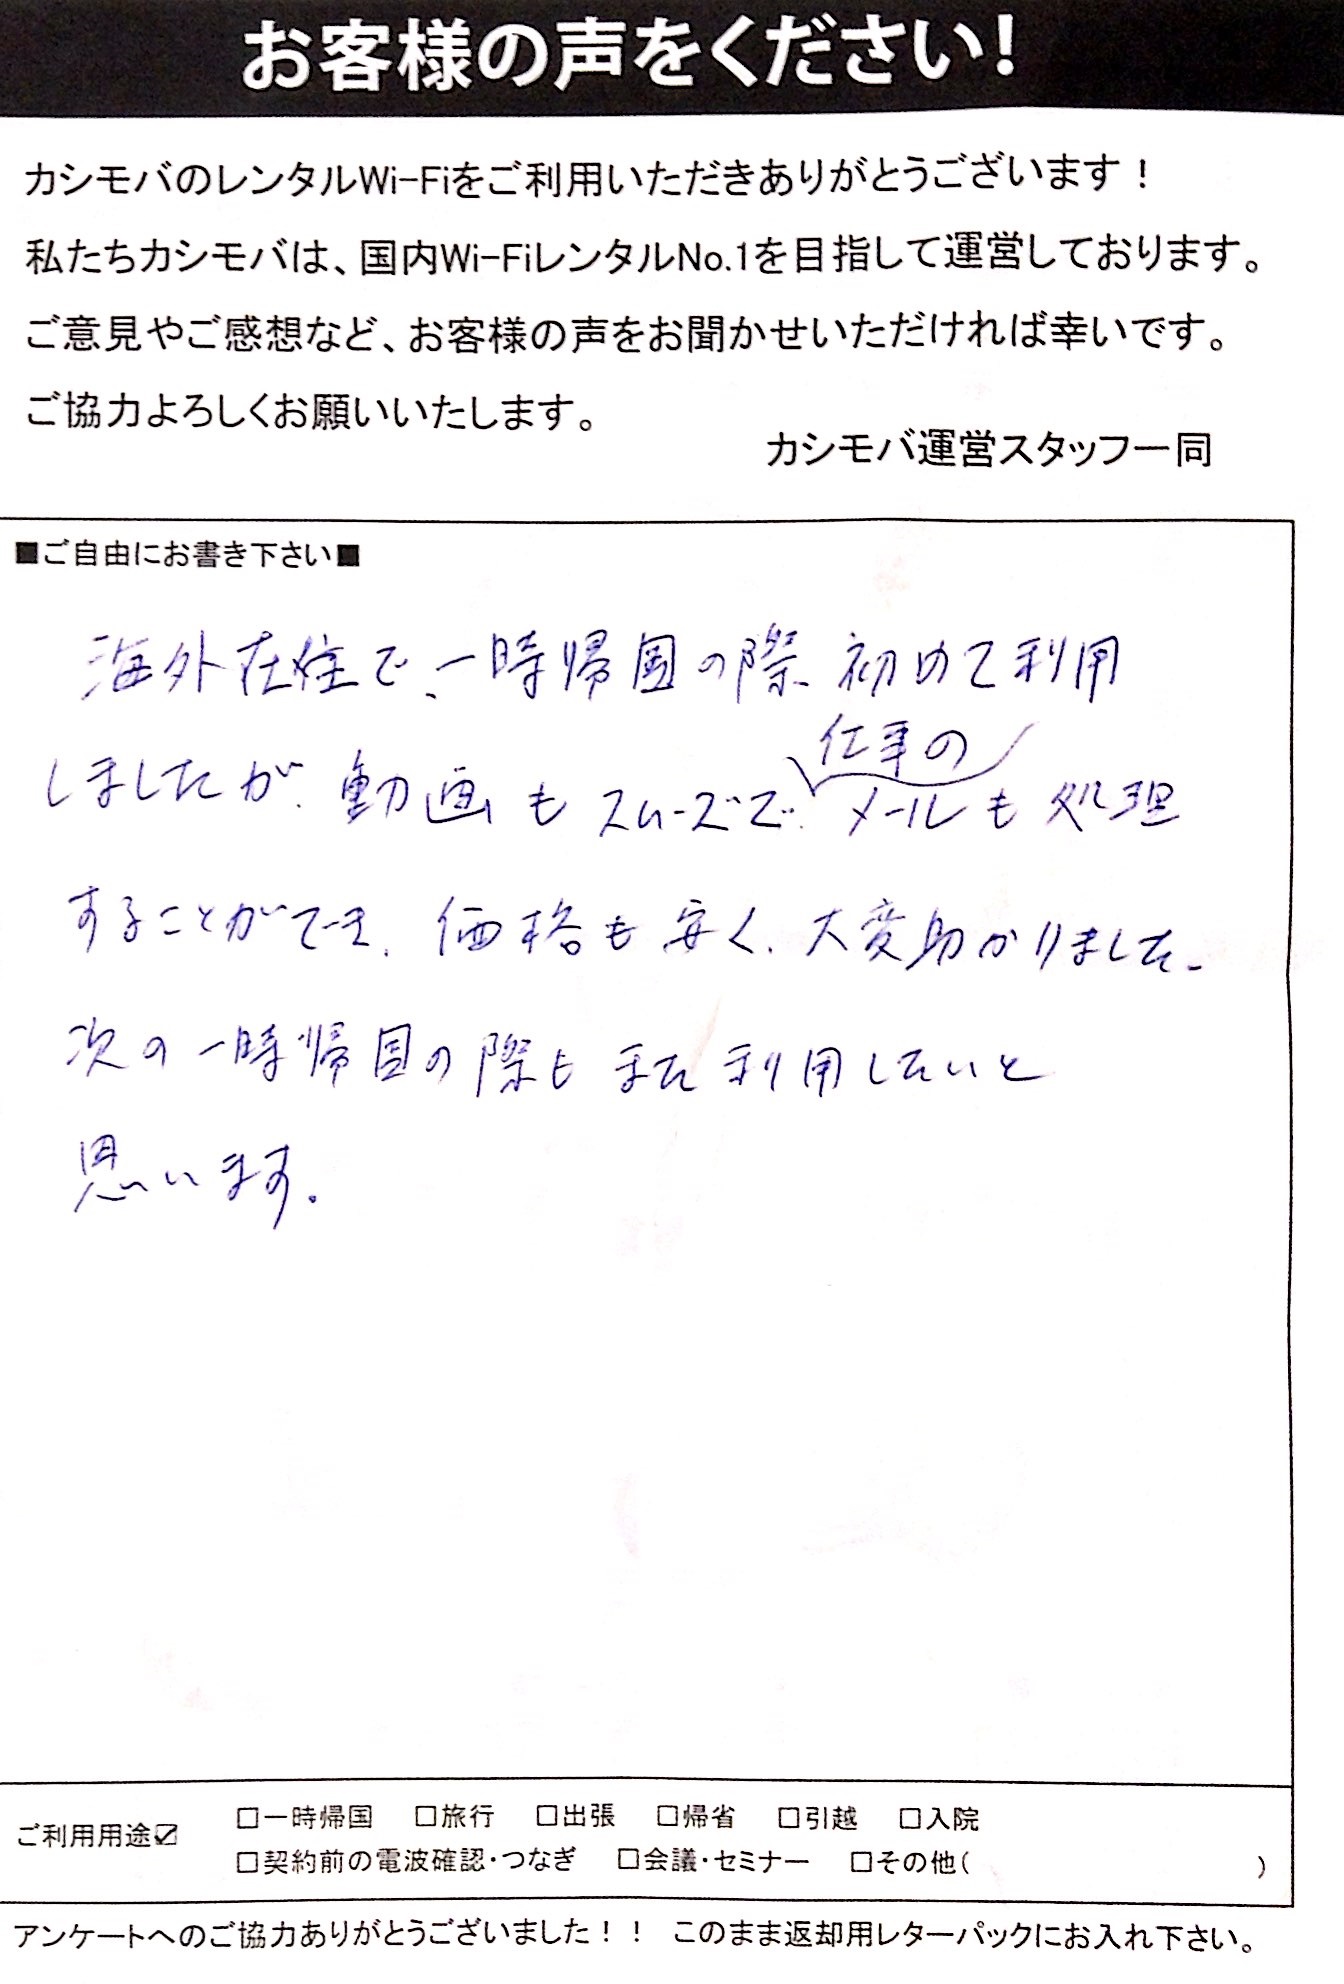 お客様の声をください!
カシモバのレンタルWi-Fiをご利用いただきありがとうございます!
私たちカシモバは、国内Wi-FiレンタルNo.1を目指して運営しております。
ご意見やご感想など、お客様の声をお聞かせいただければ幸いです。
ご協力よろしくお願いいたします。
カシモバ運営スタッフ一同
■ご自由にお書き下さい■
海外在住で、一時帰国の際、初めて利用
仕事の
しましたが、動画もスムーズで、メールも処理
することができ、価格も安く、大変助かりました。
次の一時帰国の際もまた利用したいと
思います。
ご利用用途☑ □一時帰国 □旅行 □出張 □帰省 □引越 □入院
□契約前の電波確認・つなぎ □会議・セミナー □その他( )
アンケートへのご協力ありがとうございました!! このまま返却用レターパックにお入れ下さい。